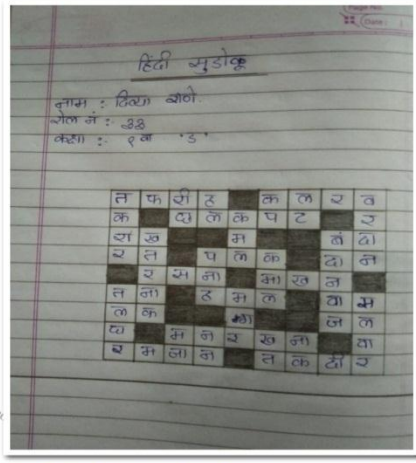 हिंदी सुडोकू
नाम : दिव्या
रोल नं : 33
कक्षा : ९ वी 'ड'
त फ री ह क ल र व
क दा ल क प ट र
रा ख म बं दा
र त प ल क दा न
र स ना मा ख न
त ना ह म ल वा म
ल क ज ल
वा म न र ख ना वा
र म जा न त क दी र